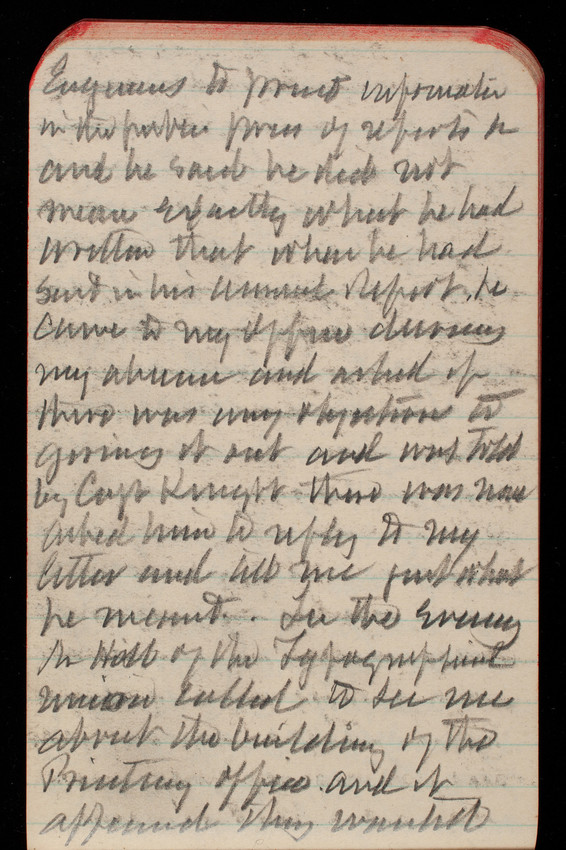 Engineers to print information
in the public press of reports &
and he said he did not
mean exactly what he had
written that when he had
sent in his Annual Report, he
came to my office during
my absence and asked if
there was any objection to
giving it out and was told
by Capt Knight there was none
asked him to reply to my
letter and tell me just what
he meant. In the evening
of the Typographical
union called to see me
about the building of the
Printing office and it
appeared they wanted